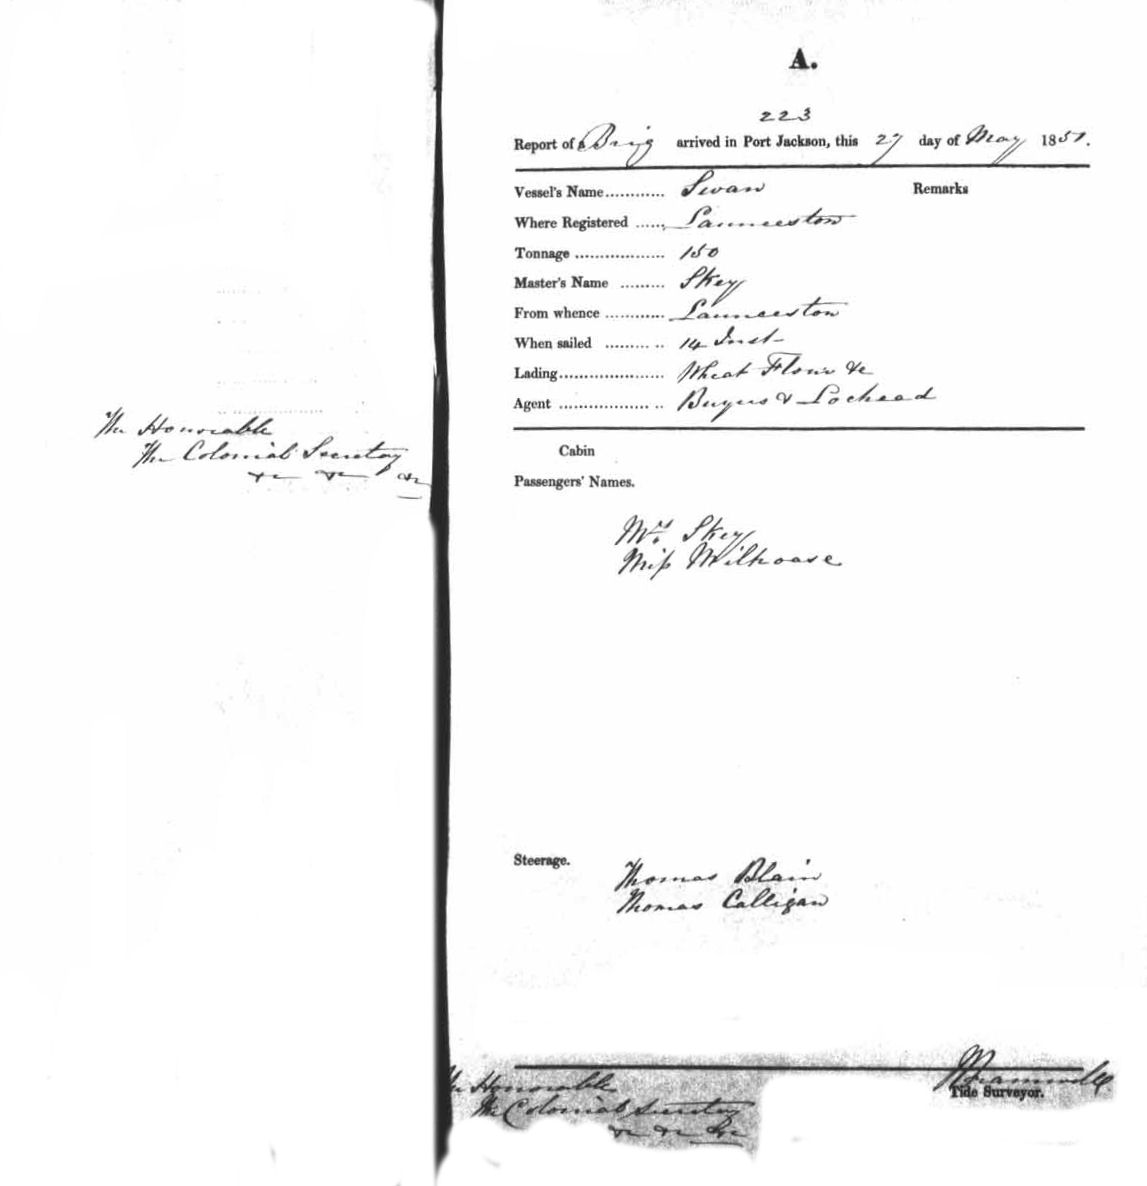 The Honorable
The Colonial Secretary
&c &c &c
A.
223
Report of Brig arrived in Port Jackson, this 27 day of May 1851.
Vessel's Name............ Swan Remarks
Where Registered ...... Launceston
Tonnage .................. 150
Master's Name ......... Skey
From whence ............ Launceston
When sailed ......... .. 14 Inst
Lading..................... Wheat Flour &c
Agent .................. .. & Lochead
Cabin
Passengers' Names.
Mrs. Skey
Miss Milhoase
Steerage.
Thomas Blain
Thomas Calligan
The Honorable
The Colonial Secretary
&c &c &c
Tide Surveyor.